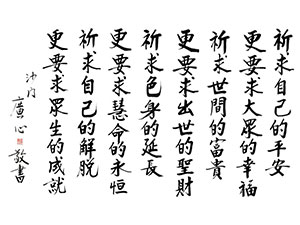 祈求自己的平安
更要求大眾的幸福
祈求世間的富貴
更要求出世的聖財
祈求色身的延長
更要求慧命的永恒
祈求自己的解脫
更要求眾生的成就
沙門
廣心
敬書